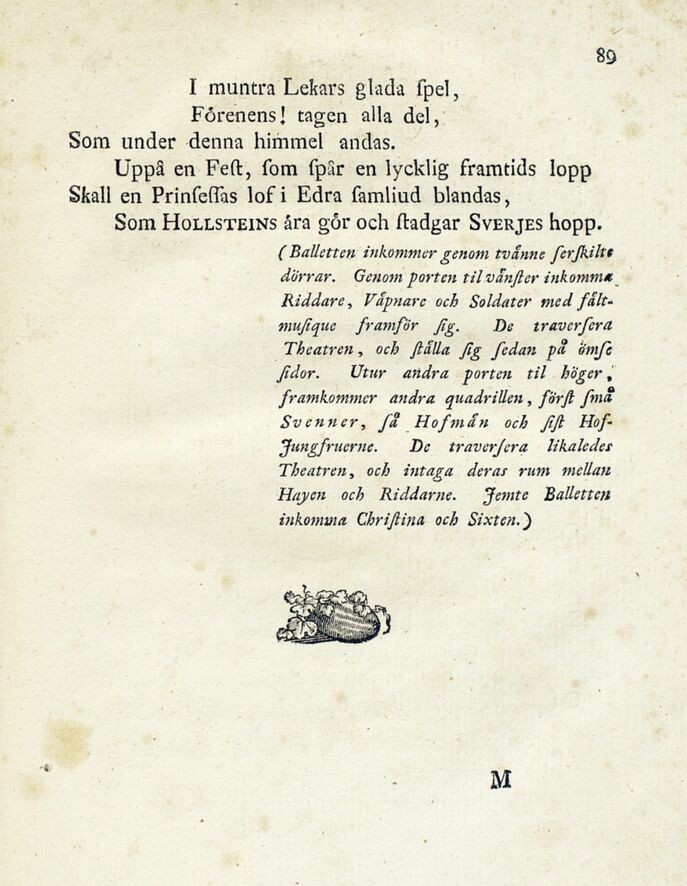 89
I muntra Lekars glada ſpel,
Förenens! tagen alla del,
Som under denna himmel andas.
Uppå en Feſt, ſom ſpår en lycklig framtids lopp
Skall en Prinſeſſas lof i Edra ſamliud blandas,
Som HOLLSTEINS åra gör och ſtadgar SVERJES hopp.
(Balletten inkommer genom tvånne ſerſkilte
dörrar. Genom porten til vånſter inkomma
Riddare, Våpnare och Soldater med fålt-
muſique framför ſig. De traverſera
Theatren, och ſtålla ſig ſedan på ömſe
ſidor. Utur andra porten til höger,
framkommer andra quadrillen, förſt ſmå
Svenner, ſå Hofmån och ſiſt Hof-
Jungfruerne. De traverſera likaledes
Theatren, och intaga deras rum mellan
Hayen och Riddarne. Jemte Balletten
inkomma Chriſtina och Sixten.)
M